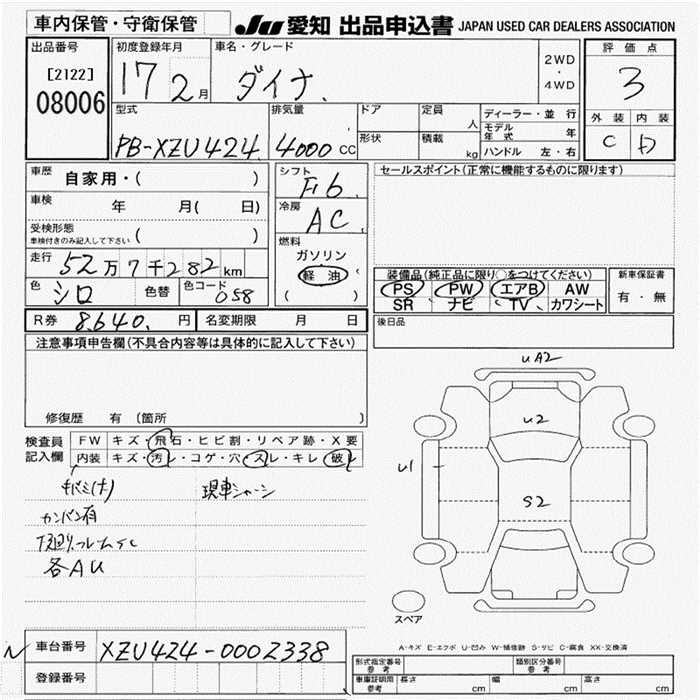 車内保管・守衛保管
JU 愛知 出品申込書 JAPAN USED CAR DEALERS ASSOCIATION
出品番号
[2122]
08006
初度登録年月
17 2月
車名・グレード
ダイナ
2WD
・
4WD
評価点
3
外装 内装
C D
型式
PB-XZU424
排気量
4000 CC
ドア
形状
定員
人
積載
kg
ディーラー・並行
モデル年式 年
ハンドル 左・右
車歴 自家用・( )
車検 年 月( 日)
受検形態
車検付きのみ記入して下さい ( )
走行 52万7千282km
色 シロ 色替 色コード 058
シフト
F6
冷房
AC
燃料
ガソリン
軽油
( )
セールスポイント(正常に機能するものに限ります)
装備品(純正品に限り○をつけてください)
PS PW エアB AW
SR ナビ TV カワシート
新車保証書
有・無
後日品
R券 8,640. 円 名変期限 月 日
注意事項申告欄(不具合内容等は具体的に記入して下さい)
修復歴 有 〔箇所 〕
検査員記入欄
FW キズ・飛石・ヒビ割・リペア跡・X要
内装 キズ・汚レ・コゲ・穴・スレ・キレ・破レ
現車シャーシ
カンバン有
下廻り、フレームSC
各AU
UA2
U2
U1
S2
スペア
A-キズ E-エクボ U-凹み W-補修跡 S-サビ C-腐食 XX-交換済
N 車台番号 XZU424-0002338
登録番号
形式指定番号 参考
類別区分番号 参考
車庫証明用 参考 長さ cm 幅 cm 高さ cm